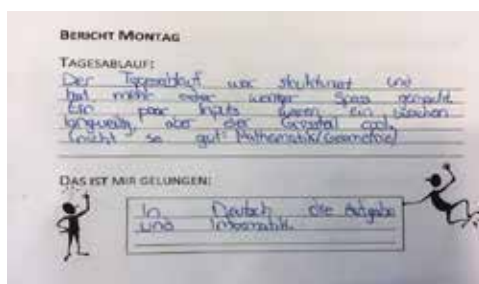 BERICHT MONTAG
TAGESABLAUF:
Der Tagesablauf war strukturiert und
hat mehr oder weniger Spass gemacht.
Ein paar Inputs waren ein bisschen
langweilig, aber der Grossteil cool.
(nicht so gut: Mathematik(Geometrie)
DAS IST MIR GELUNGEN:
In Deutsch die Aufgabe
und Informatik.